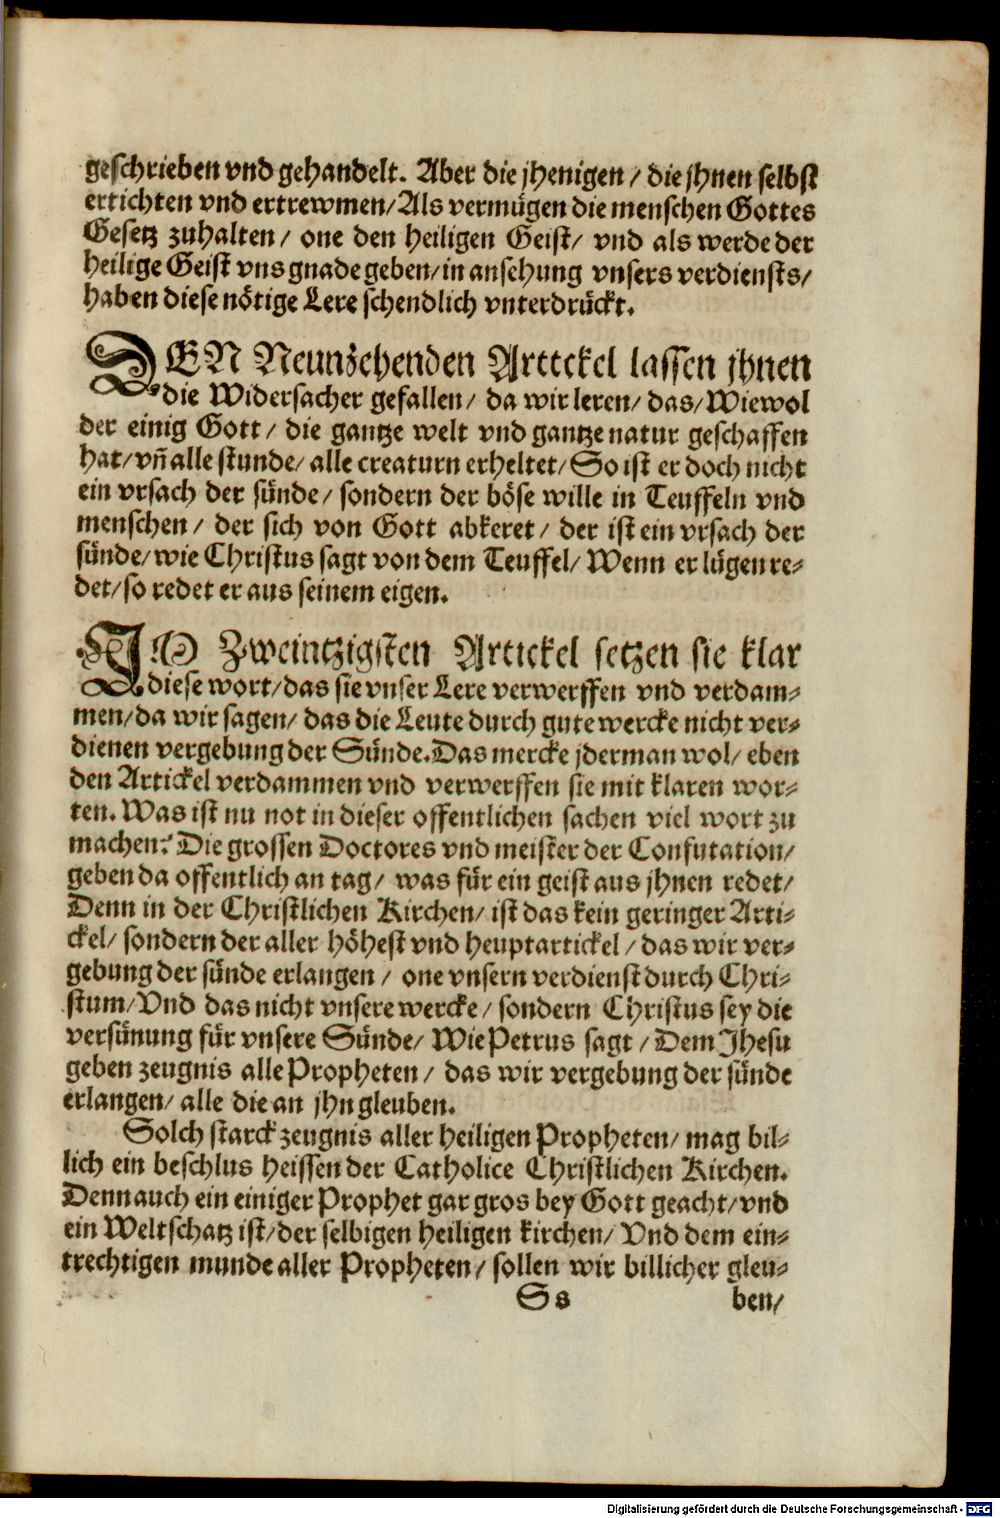 geschrieben vnd gehandelt. Aber die jhenigen / die jhnen selbst
ertichten vnd ertrewmen/ Als vermügen die menschen Gottes
Gesetz zuhalten/ one den heiligen Geist/ vnd als werde der
heilige Geist vns gnade geben/ in ansehung vnsers verdiensts/
haben diese nötige Lere schendlich vnterdrückt.
DEN Neunzehenden Artickel lassen jhnen
die Widersacher gefallen/ da wir leren/ das/ Wiewol
der einig Gott/ die gantze welt vnd gantze natur geschaffen
hat/ vn̄ alle stunde/ alle creaturn erheltet/ So ist er doch nicht
ein vrsach der sünde/ sondern der böse wille in Teuffeln vnd
menschen/ der sich von Gott abkeret/ der ist ein vrsach der
sünde/ wie Christus sagt von dem Teuffel/ Wenn er lügen re-
det/ so redet er aus seinem eigen.
IM Zweintzigsten Artickel setzen sie klar
diese wort/ das sie vnser Lere verwerffen vnd verdam-
men/ da wir sagen/ das die Leute durch gute wercke nicht ver-
dienen vergebung der Sünde. Das mercke jderman wol/ eben
den Artickel verdammen vnd verwerffen sie mit klaren wor-
ten. Was ist nu not in dieser offentlichen sachen viel wort zu
machen? Die grossen Doctores vnd meister der Confutation/
geben da offentlich an tag/ was für ein geist aus jhnen redet/
Denn in der Christlichen Kirchen/ ist das kein geringer Arti-
ckel/ sondern der aller höhest vnd heuptartickel/ das wir ver-
gebung der sünde erlangen/ one vnsern verdienst durch Chri-
stum/ Vnd das nicht vnsere wercke/ sondern Christus sey die
versünung für vnsere Sünde/ Wie Petrus sagt/ Dem Jhesu
geben zeugnis alle Propheten/ das wir vergebung der sünde
erlangen/ alle die an jhn gleuben.
Solch starck zeugnis aller heiligen Propheten/ mag bil-
lich ein beschlus heissen der Catholice Christlichen Kirchen.
Denn auch ein einiger Prophet gar gros bey Gott geacht/ vnd
ein Weltschatz ist/ der selbigen heiligen kirchen/ Vnd dem ein-
trechtigen munde aller Propheten/ sollen wir billicher gleu-
Ss ben/
Digitalisierung gefördert durch die Deutsche Forschungsgemeinschaft - DFG